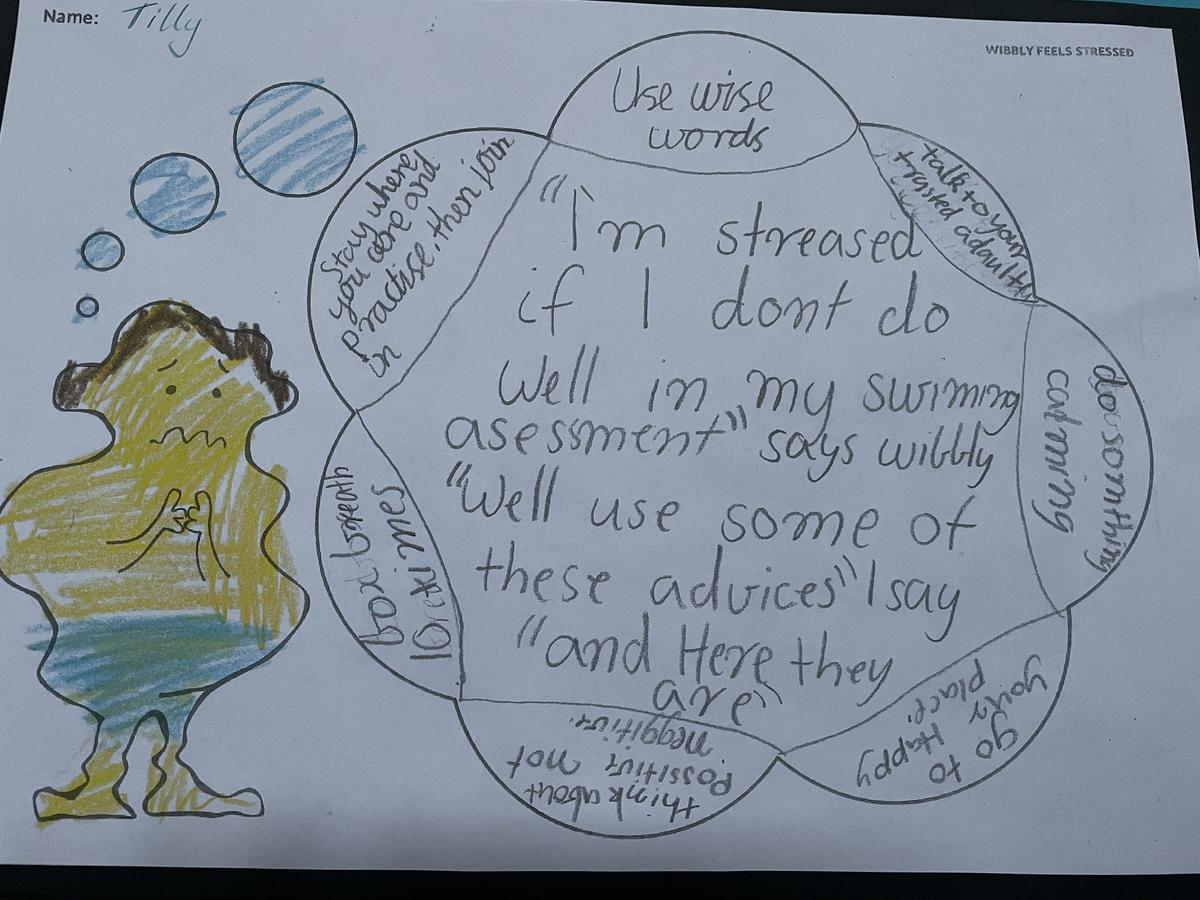 Name: Tilly
WIBBLY FEELS STRESSED
Use wise
words
talk to your
trasted adault
do somthing
catming
go to
Happy
your
place.
think about
Possitive not
neggitive.
box breath
10 reti mes
Stay where
you are and
practise, then join
in
"I'm streased
if I dont do
Well in my swiming
asessment" says wibbly
"Well use some of
these advices" I say
"and Here they
are"